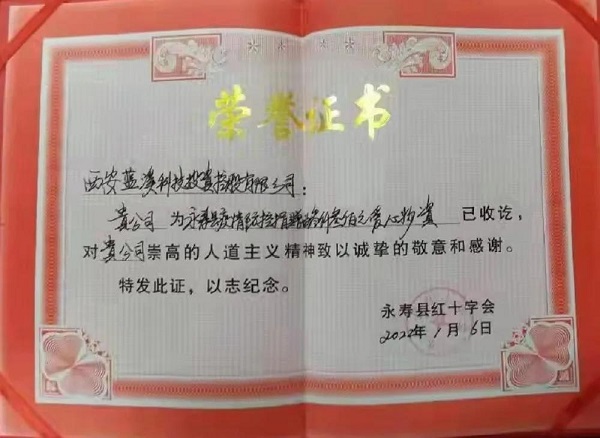 荣誉证书
西安蓝溪科技投资控股有限公司：
贵公司 为永寿县疫情防控捐赠 爱心物资 已收讫，
对贵公司崇高的人道主义精神致以诚挚的敬意和感谢。
特发此证，以志纪念。
永寿县红十字会
2022年1月6日